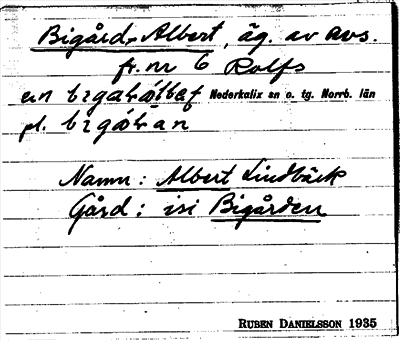 Bigård-Albert, äg. av avs.
fr. nr 6 Rolfs
Nederkalix sn o. tg. Norrb. län
pl. bigåran
Namn: Albert Lindbäck
Gård: isi Bigården
RUBEN DANIELSSON 1935